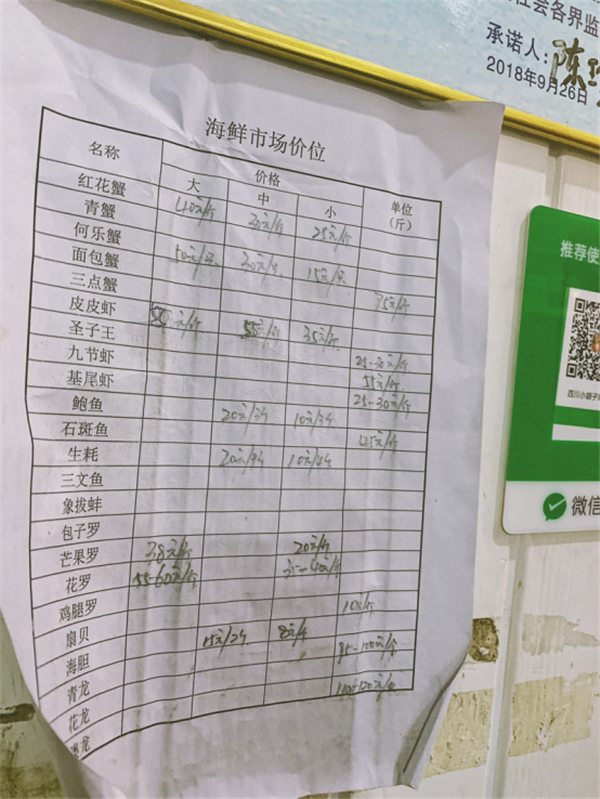 社会各界监
承诺人：陈
2018年9月26日
海鲜市场价位
名称 价格 单位（斤）
大 中 小
红花蟹
青蟹 40元/斤 30元/斤 25元/斤
何乐蟹
面包蟹 50元/只 30元/只 15元/只
三点蟹
皮皮虾 55元/斤 55元/斤 35元/斤
圣子王
九节虾 25-30元/斤
基尾虾 55元/斤
25-30元/斤
鲍鱼 20元/3个 10元/3个
石斑鱼 45元/斤
生耗 10元/4个
三文鱼
象拔蚌
包子罗
芒果罗 38元/斤 20元/斤
花罗 55-60元/斤
鸡腿罗 10元/斤
扇贝 15元/2个
海胆 85-100元/斤
青龙
花龙
龙
推荐使
四川小胡子
微信